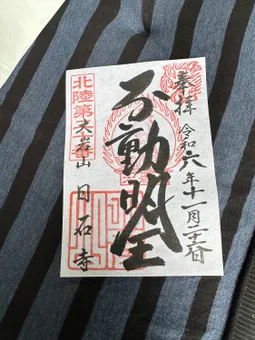 奉拝
令和六年十一月二十三日
不動明王
北陸第
大岩山
日石寺